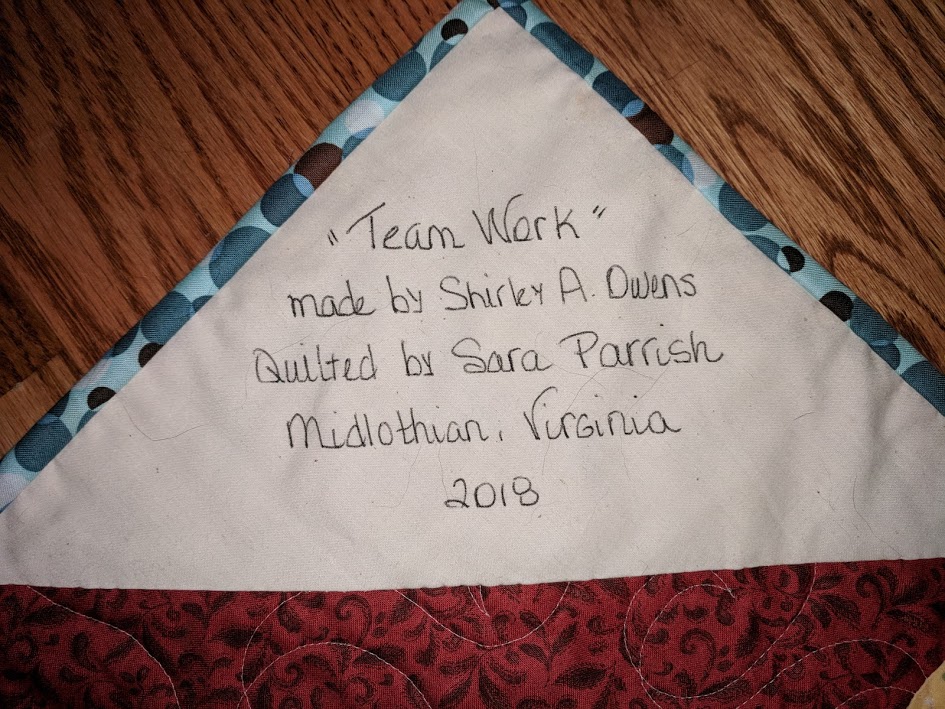 "Team Work"
made by Shirley A. Owens
Quilted by Sara Parrish
Midlothian, Virginia
2018